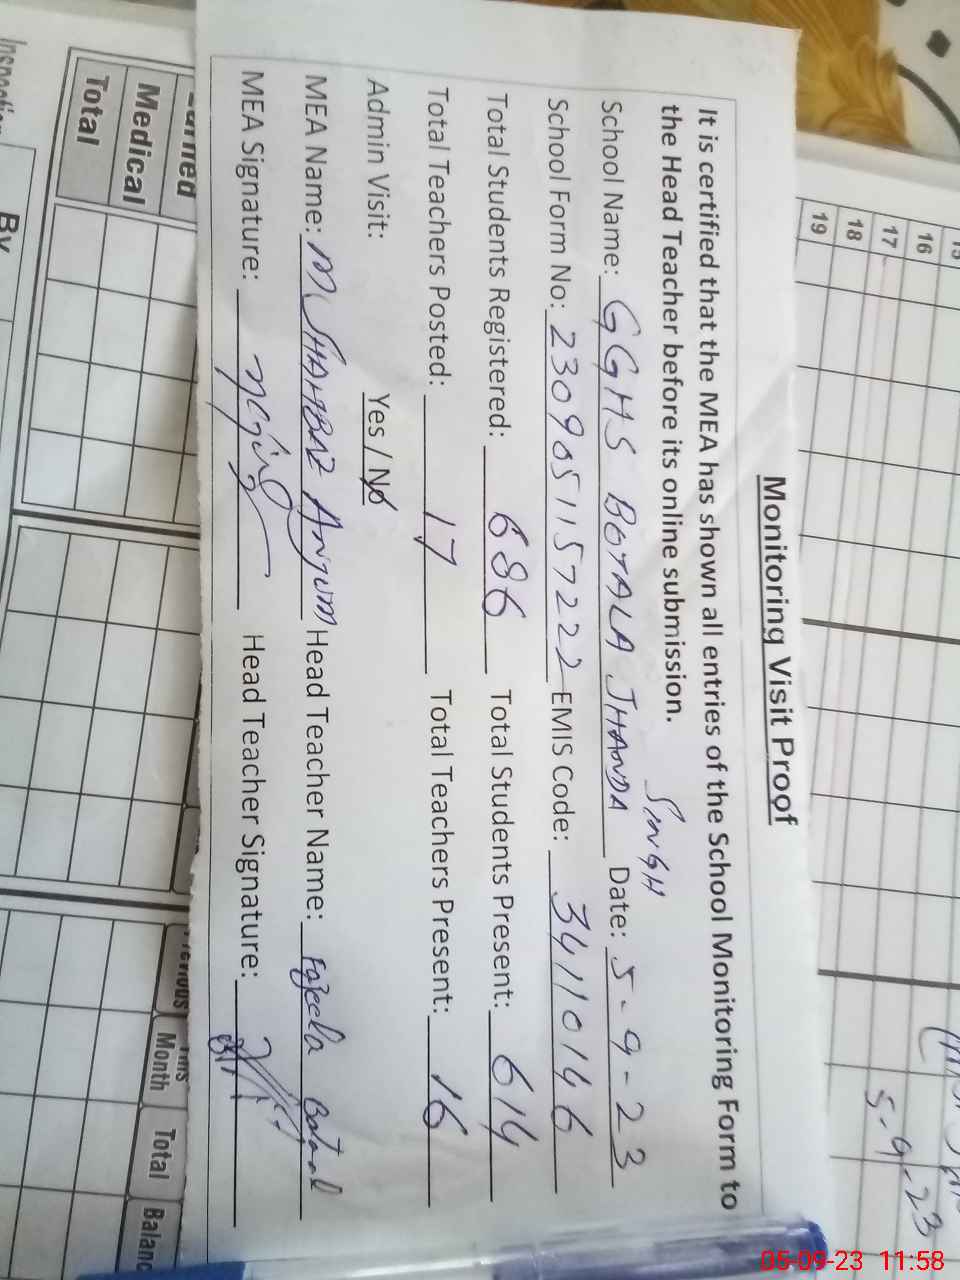 Monitoring Visit Proof
It is certified that the MEA has shown all entries of the School Monitoring Form to
the Head Teacher before its online submission.
SINGH
School Name: GGHS BOTALA JHANDA Date: 5-9-23
School Form No: 2309051157222 EMIS Code: 34110146
Total Students Registered: 686 Total Students Present: 614
Total Teachers Posted: 17 Total Teachers Present: 16
Admin Visit: Yes / No
MEA Name: M SHAHBAZ ANJUM Head Teacher Name: Fazeela Batool
MEA Signature: Head Teacher Signature:
15
16
17
18
19
5-9-23
Medical
Total
By
Month
Total
05-09-23 11:58